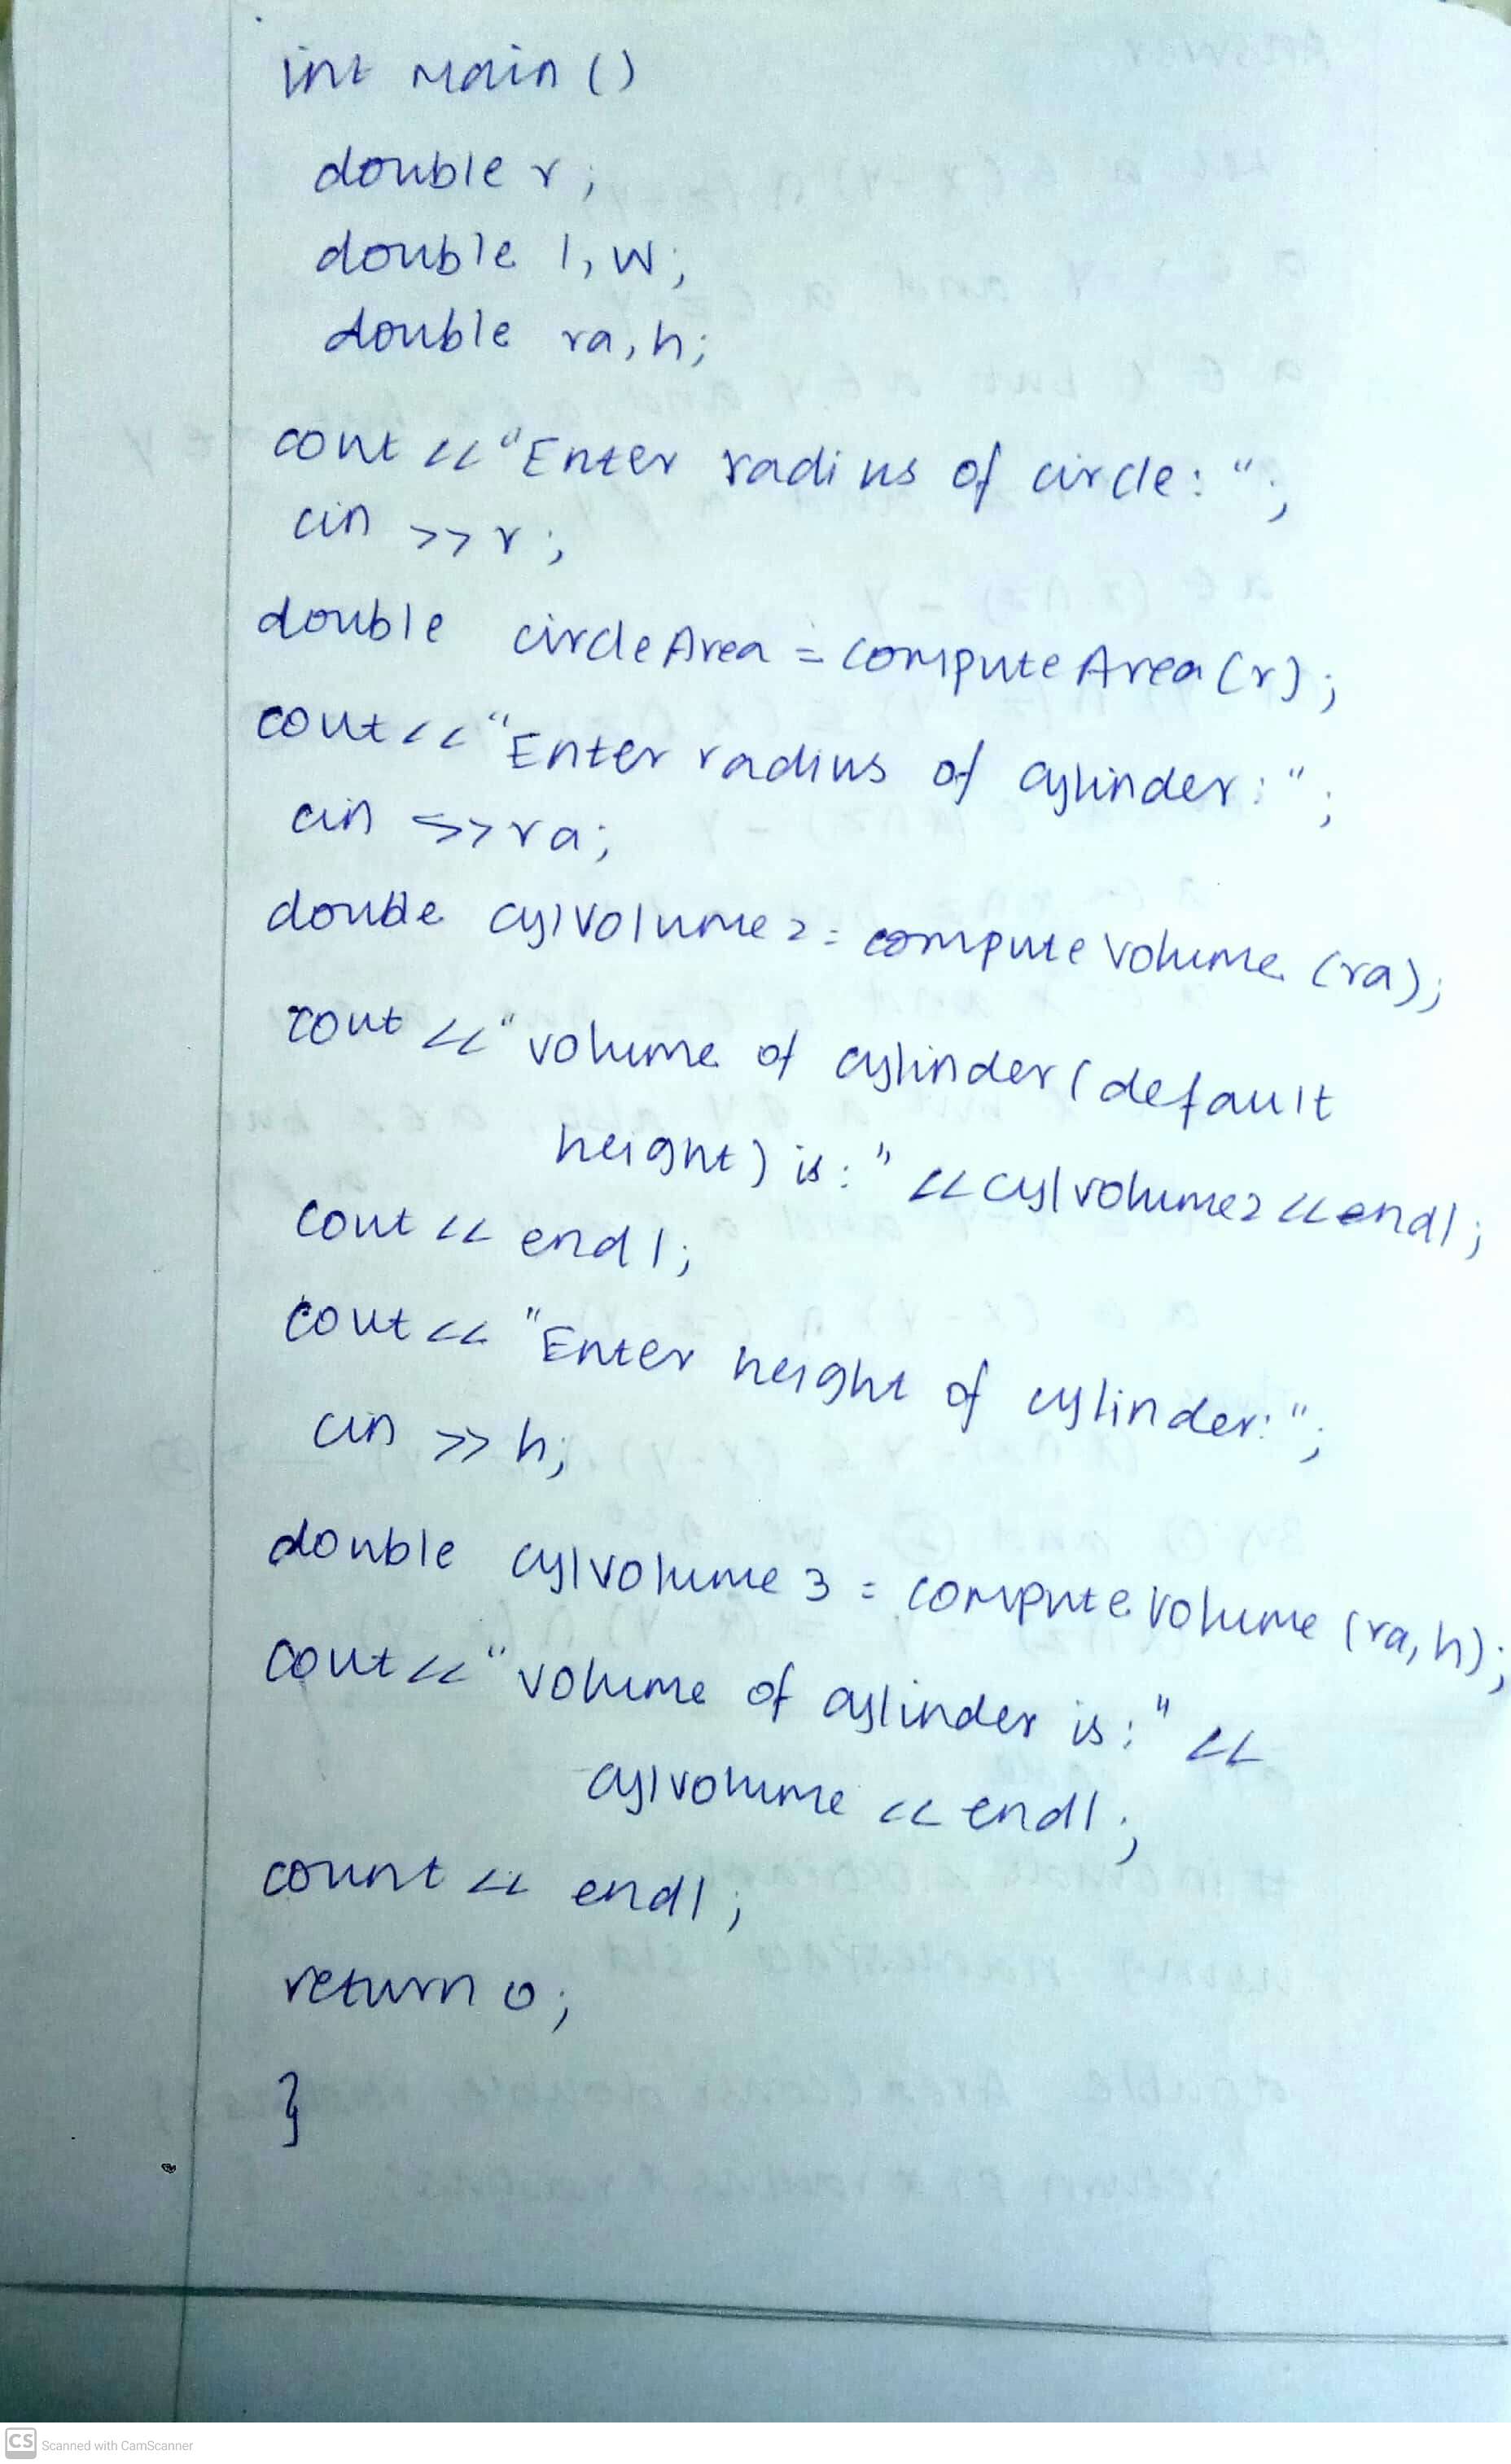 int main ()
double r;
double l, w;
double ra, h;
cout << "Enter radius of circle: ";
cin >> r;
double circleArea = computeArea (r);
cout << "Enter radius of cylinder: ";
cin >> ra;
double cylvolume2 = compute volume (ra);
cout << "volume of cylinder (default
height) is: " << cylvolume2 << endl;
cout << endl;
cout << "Enter height of cylinder: ";
cin >> h;
double cylvolume 3 = compute volume (ra, h);
cout << "volume of cylinder is: " <<
cylvolume << endl;
count << endl;
return 0;
}
CS Scanned with CamScanner